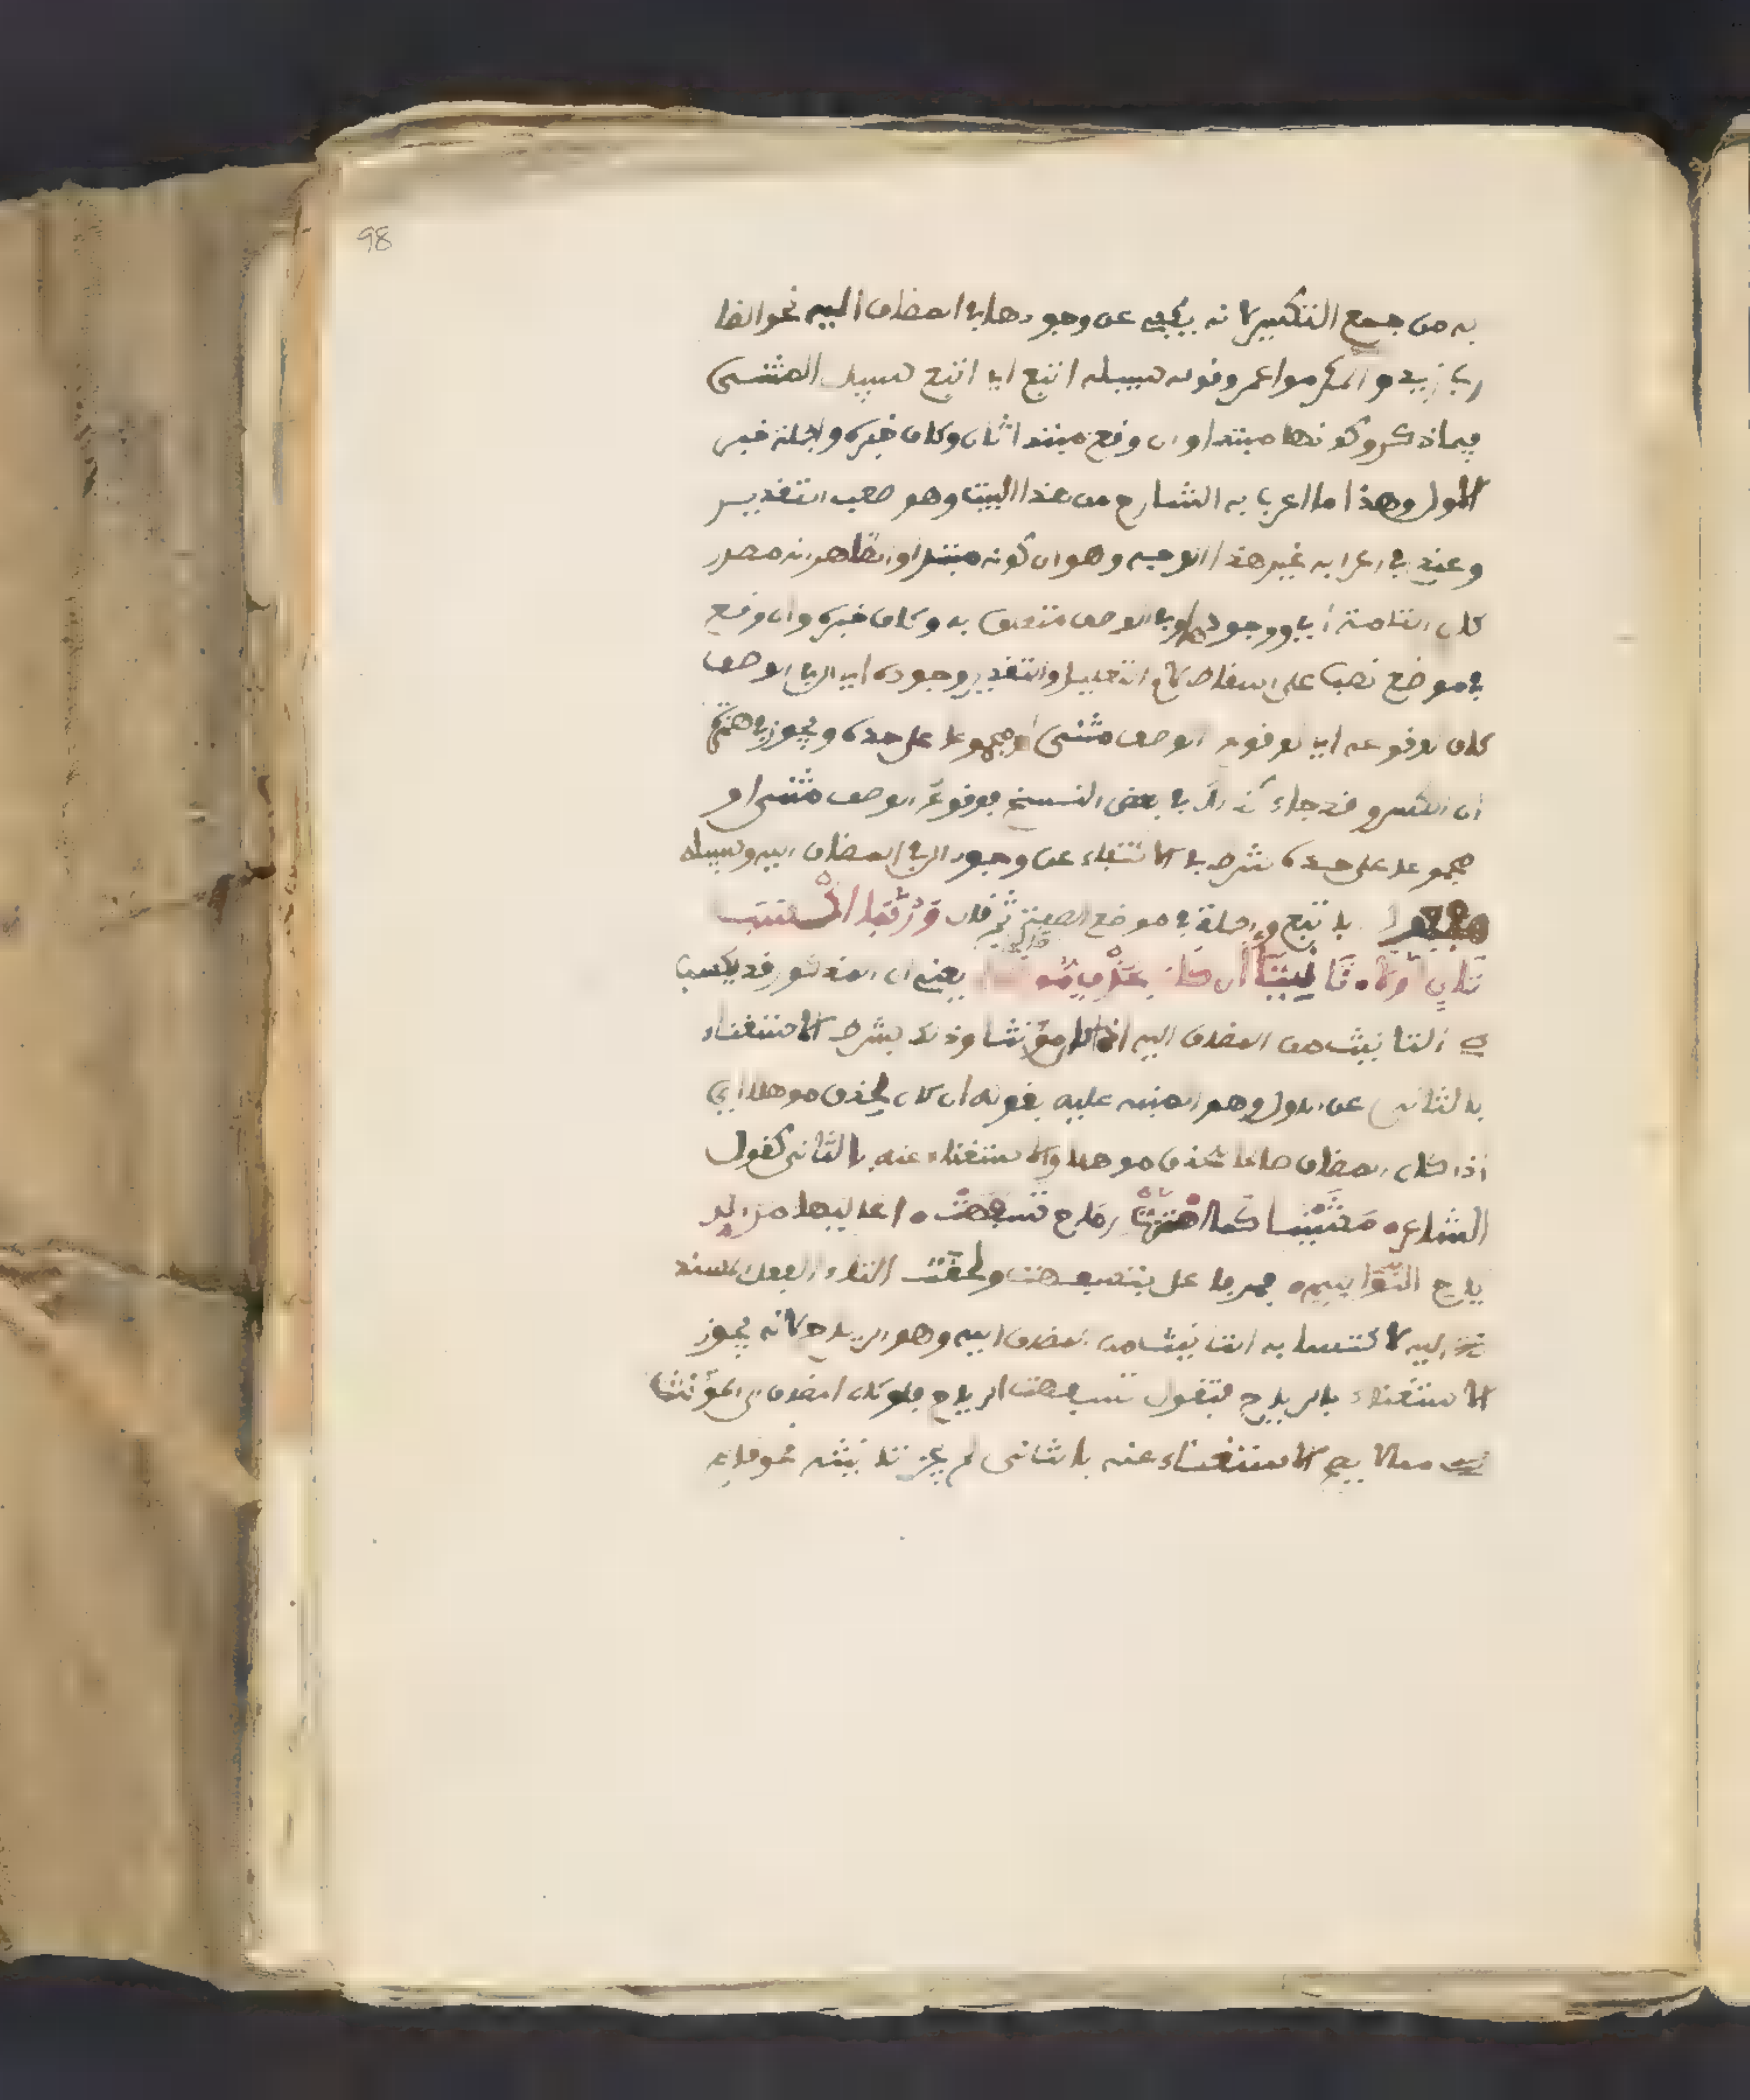 98
به من جمع التكسير لانه يكفى عن وجودها في المضاف اليه نحو الضا
ربا زيد والمكرموا عمرو وقوله سبيله اتبع اي اتبع سبيل المثنى
فيما ذكر وكونها مبتدا وان وقع مبتدا ثان وكاف خبره والجملة خبر
الاول وهذا ما اعرب به الشارح من هذا البيت وهو صعب التقدير
وعندي في اعرابه غير هذا الوجه وهو ان كونه مبتدا والظاهر انه مصدر
كان التامة اي ووجودها وفي الوصف متعلق به وكاف خبره وان وقع
في موضع نصب على اسقاط لام التعليل والتقدير وجوده اي ال في الوصف
كاف لوقوعه اي لوقوع الوصف مثنى او مجموعا على حده ويجوز في همزة
ان الكسر وقد جاء كذلك في بعض النسخ فوقوع الوصف مثنى او
مجموعا على حده شرط في الاكتفاء عن وجود ال في المضاف اليه وسبيله
مفعول باتبع والجملة في موضع الصفة ثم قال وربما اكسب
ثان اولا تانيثا ان كان لحذف موهلا يعني ان المذكور قد يكسب
التانيث من المضاف اليه اذا كان مؤنثا وذلك بشرط الاستغناء
بالثاني عن الاول وهو المنبه عليه بقوله ان كان لحذف موهلا اي
اذا كان المضاف صالحا للحذف موهلا والاستغناء عنه بالثاني كقول
الشاعر مشين كما اهتزت رماح تسفهت اعاليها مر الر
ياح النواسم فمر فاعل بتسفهت ولحقت التاء الفعل المسند
اليه لاكتسابه التانيث من المضاف اليه وهو الرياح لانه يجوز
الاستغناء بالرياح فتقول تسفهت الرياح فلو كان المضاف الى المؤنث
مما لا يصح الاستغناء عنه بالثاني لم يجز تانيثه نحو قام